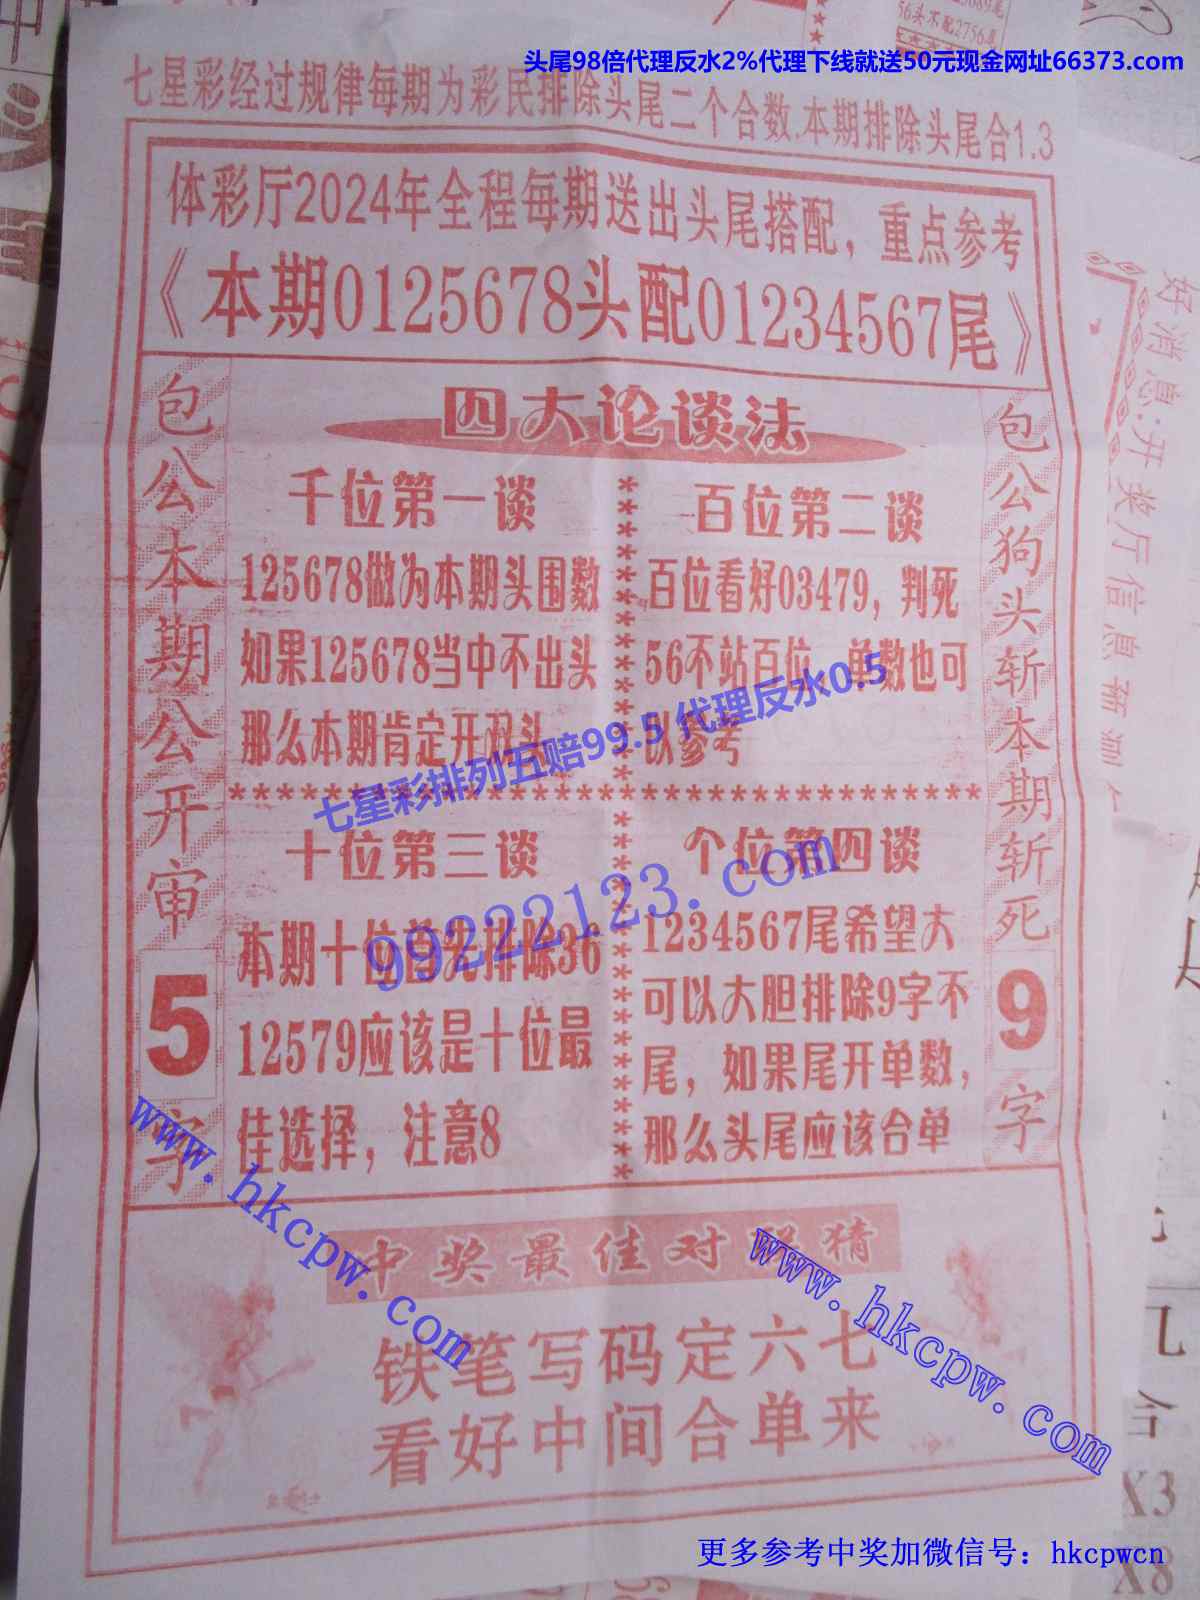 56头不配2756尾
头尾98倍代理反水2%代理下线就送50元现金网址66373.com
七星彩经过规律每期为彩民排除头尾二个合数.本期排除头尾合1.3
体彩厅2024年全程每期送出头尾搭配，重点参考
《本期0125678头配01234567尾》
包公本期公开审5字
四大论谈法
千位第一谈
125678做为本期头围数
如果125678当中不出头
那么本期肯定开双头
百位第二谈
百位看好03479，判死
56不站百位，单数也可
以参考
七星彩排列五赔99.5 代理反水0.5
************************************
十位第三谈
本期十位首先排除36
12579应该是十位最
佳选择，注意8
个位第四谈
1234567尾希望大
可以大胆排除9字不
尾，如果尾开单数，
那么头尾应该合单
99222123.com
包公狗头斩本期斩死9字
www.hkcpw.com
www.hkcpw.com
中奖最佳对
猜
铁笔写码定六七
看好中间合单来
好消息:开奖厅信息
合
X3
X8
更多参考中奖加微信号：hkcpwcn